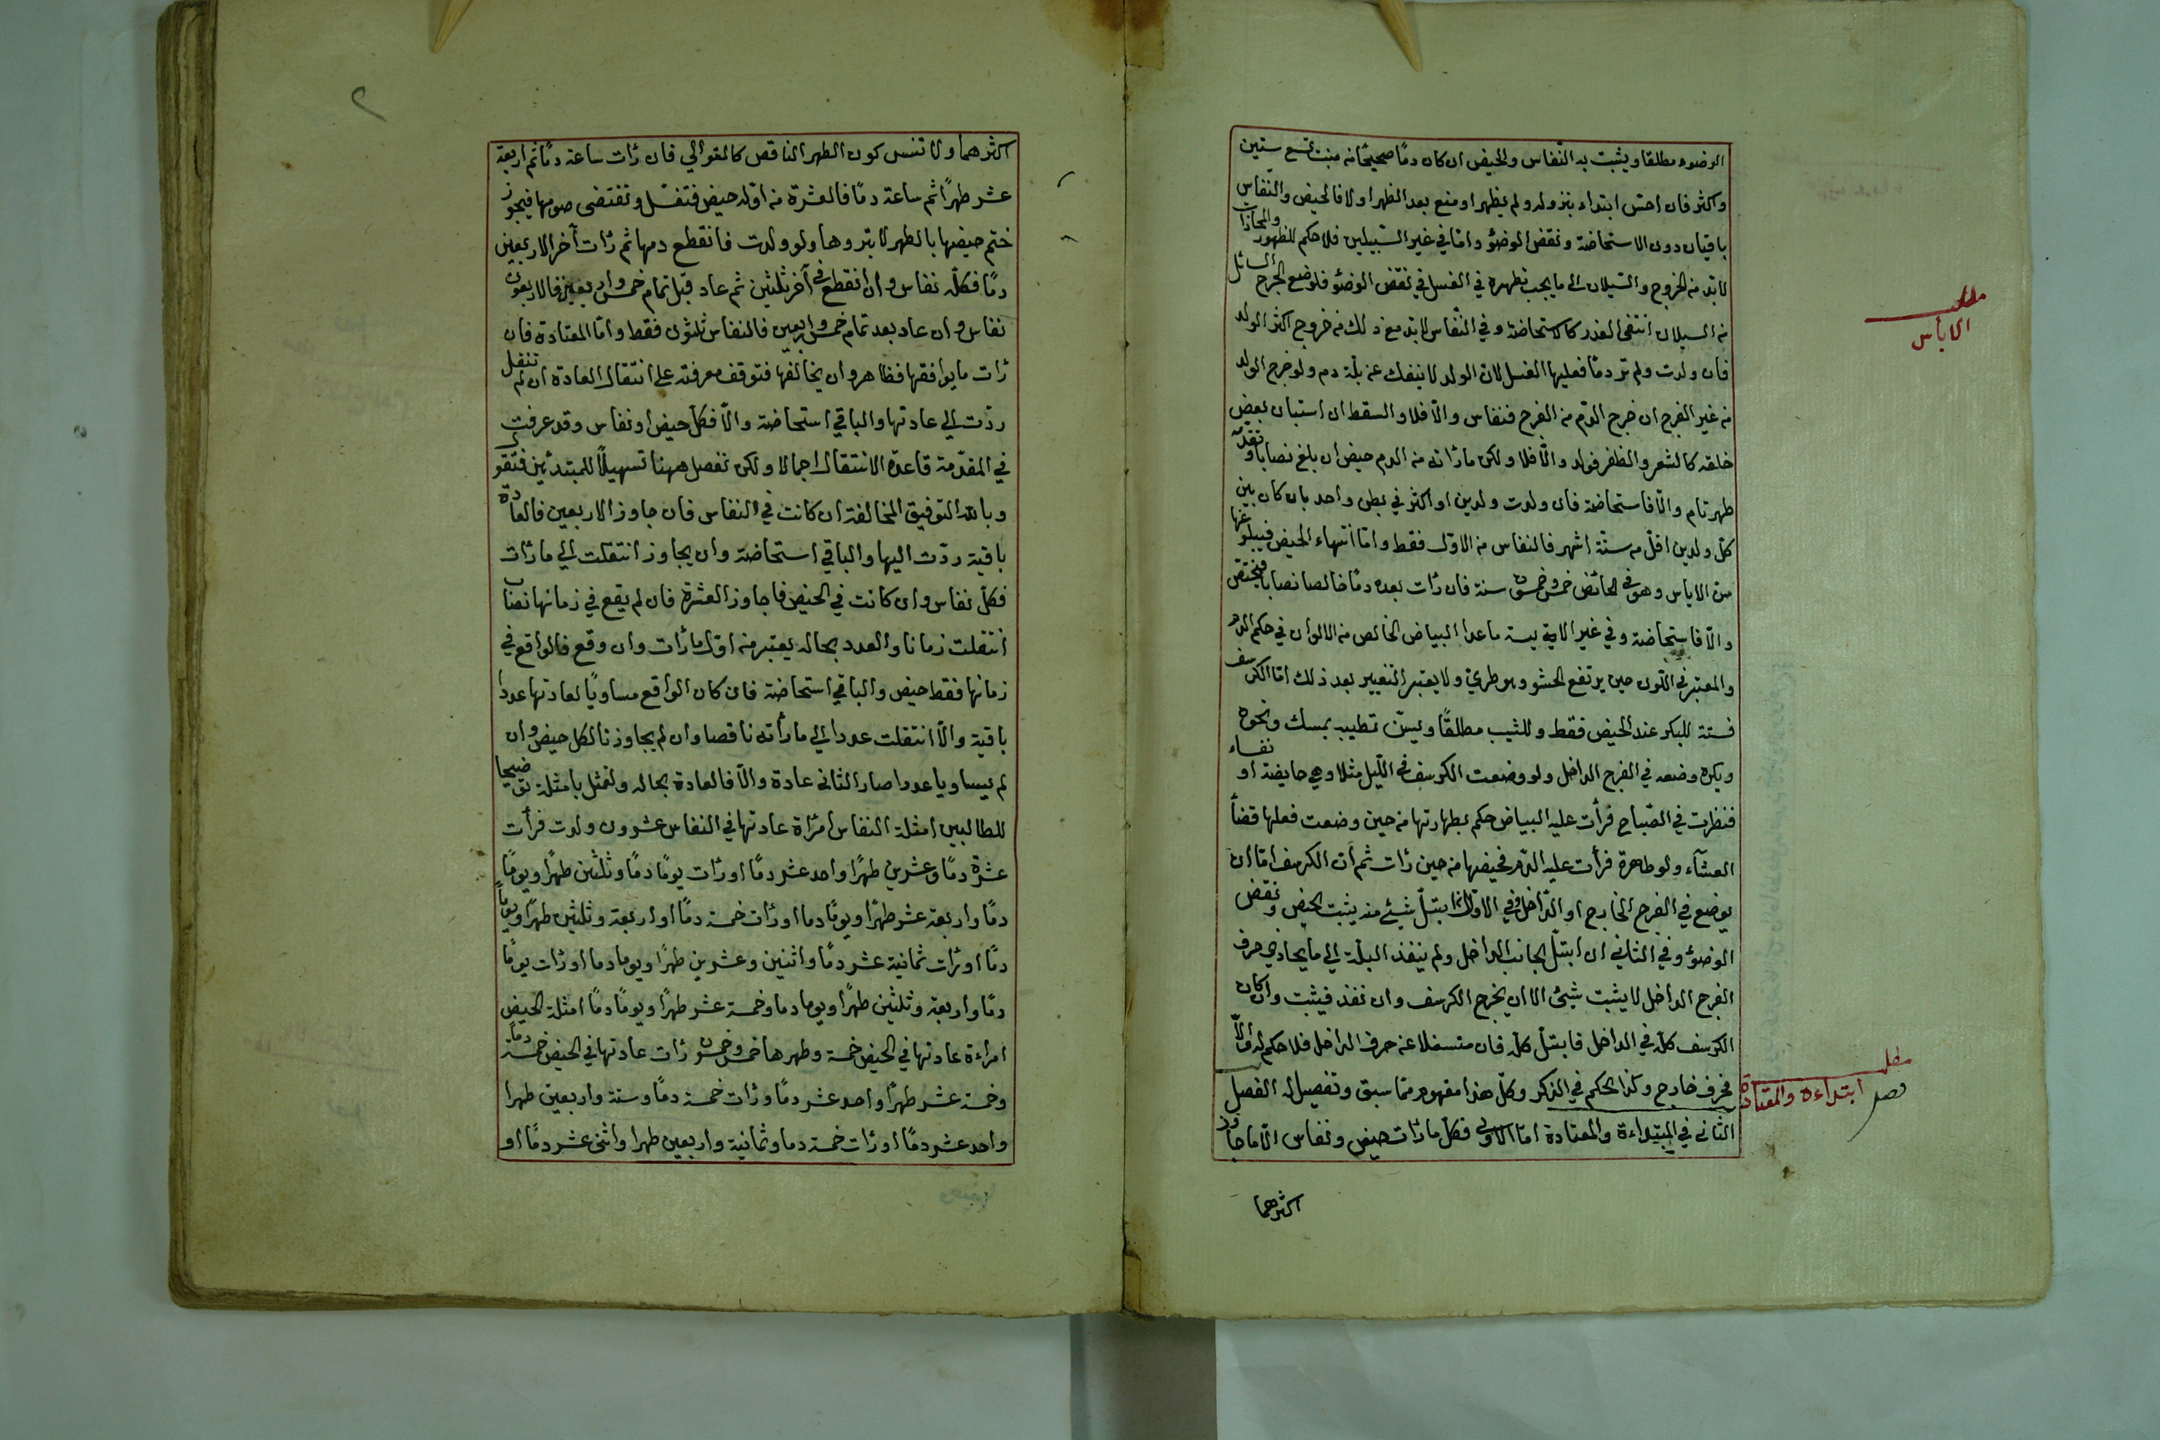 الوضوء مطلقا ويثبت به النّفاس والحيض ان كان دمًا صحيحًا من بنت تسع سنين
واكثر فان احسّ ابتداء بنزوله ولم يظهر او منع بعد الظهر اولا فالحيض والنّفاس
باقيان دون الاستحاضة ونقض الوضوٴ وامّا في غير السّبيلين فلا حكم للظهور والمحاذاة
لا بدّ من الخروج والسّيلان الى ما يجب تطهيره في الغسل في نقض الوضوٴ فلو منع الجرح السائل
من السيلان انتفى العذر كالاستحاضة وفي النّفاس لا بدّ مع ذلك من خروج اكثر الولد
فان ولدت ولم تر دمًا فعليها الغسل لانّ الولد لا ينفك عن بلّة دم ولو خرج الولد
من غير الفرج ان خرج الدّم من الفرج فنفاس والّا فلا والسقط ان استبان بعض
خلقه كالشعر والظفر فولد والّا فلا ولكن ما رأته من الدم حيض ان بلغ نصابا وتقدّمه
طهر تام والّا فاستحاضة فان ولدت ولدين او اكثر في بطن واحد بان كان بين
كلّ ولدين اقلّ من ستّة اشهر فالنفاس من الاوّل فقط وامّا انتهاء الحيض فببلوغها
سنّ الاياس وهو في الحائض خمس وخمسون سنة فان رأت بعده دمًا خالصا نصابا فيختص
والّا فاستحاضة وفي غير الايسة ما عدا البياض الخالص من الالوان في حكم الدم
والمعتبر في اللّون حين يرتفع الحشو وهو طريّ ولا يعتبر التغيير بعد ذلك امّا الكرسف
فسنّة للبكر عند الحيض فقط وللثيب مطلقًا ويسنّ تطييبه بمسك ونحوه
ويكره وضعه في الفرج الداخل ولو وضعت الكرسف في اللّيل مثلا وهي حايضة او نفساء
فنظرت في الصّباح فرأت عليه البياض حكم بطهارتها من حين وضعت فعليها قضأ
العشآء ولو طاهرة فرأت عليه الدّم فحيضها من حين رأت ثم انّ الكرسف امّا ان
يوضع في الفرج الخارج او الدّاخل وفي الاوّل اذا ابتلّ شيئ منه يثبت الحيض ونقض
الوضوٴ وفي الثاني ان ابتلّ الجانب الداخل ولم ينفذ البلّة الى ما يحاذي حرف
الفرج الداخل لا يثبت شيئ الا ان يخرج الكرسف وان نفذ فيثبت وان كان
الكرسف كلّه في الداخل فابتلّ كلّه فان متسفلا عن حرف الداخل فلا حكم له والّا
فخرف خارج وكذا الحكم في الذكر وكلّ هذا مفهوم ممّا سبق وتفصيل له الفصل
الثاني في المبتداءة والمعتادة امّا الاولى فكلّ ما رأت حيض ونفاس الّا ما جاوز
اكثرهما
مطلب
الايأس
مطلب
ابتداءة والمعتادة
فصل
اكثرهما ولا تنس كون الطهر الناقص كالمتوالي فان رأت ساعة دمًا ثم اربعة
عشر طهرًا ثم ساعة دمًا فالعشرة من اوّله حيض فتغسل وتقتضى صومها فيجوز
ختم حيضها بالطهر لا بدؤها ولو ولدت فانقطع دمها ثم رأت آخر الاربعين
دمًا فكلّه نفاس وان انقطع في آخر ثلثين ثم عاد قبل تمام خمس واربعين فالاربعون
نفاس وان عاد بعد تمام خمس واربعين فالنفاس ثلثون فقط وامّا المعتادة فان
رأت ما يوافقها فظاهر وان يخالفها فتوقف معرفته على انتقال العادة ان لم تنتقل
ردّت الى عادتها والباقي استحاضة والّا فكلّ حيض او نفاس وقد عرفت
في المقدّمة قاعدة الانتقال اجمالا ولكن نفصل ههنا تسهيلًا للمبتدئين فنقول
وبالله التوفيق المخالفة ان كانت في النفاس فان جاوز الاربعين فالعادة
باقية ردّت اليها والباقي استحاضة وان يجاوز انتقلت الى ما رأت
فكلّ نفاس وان كانت في الحيض فا جاوز العشرة فان لم يقع في زمانها نصاب
انتقلت زمانا والعدد بحاله يعتبر من اوّل ما رأت وان وقع فالواقع في
زمانها فقط حيض والباقي استحاضة فان كان الواقع مساويًا لعادتها عددا
باقية والّا انتقلت عددا الى ما رأته ناقصا وان لم يجاوز فالكل حيض وان
لم يساويا عددا صار الثانى عادة والّا فالعادة بحاله ولنمثل بامثلة توضيحا
للطالبين امثلة النفاس امرأة عادتها في النفاس عشرون ولدت فرأت
عشرة دمًا وعشرين طهرًا واحد عشر دمًا او رأت يومًا دمًا وثلثين طهرًا ويومًا
دمًا واربعة عشر طهرًا ويومًا دما او رأت خمسة دمًا او اربعة وثلثين طهرًا ويومًا
دمًا او رأت ثمانية عشر دمًا واثنين وعشرين طهرًا ويوما دما او رأت يومًا
دمًا واربعة وثلثين طهرًا ويوما دما وخمسة عشر طهرًا ويومًا دمًا امثلة الحيض
امراءة عادتها في الحيض خمسة وطهرها خمس وخمسون رأت عادتها في الحيض خمسة دمًا
وخمسة عشر طهرًا واحد عشر دمًا ورأت خمسة دمًا وستة واربعين طهرا
واحد عشر دمًا او رأت خمسة دما وثمانية واربعين طهرا واثنى عشر دمًا او